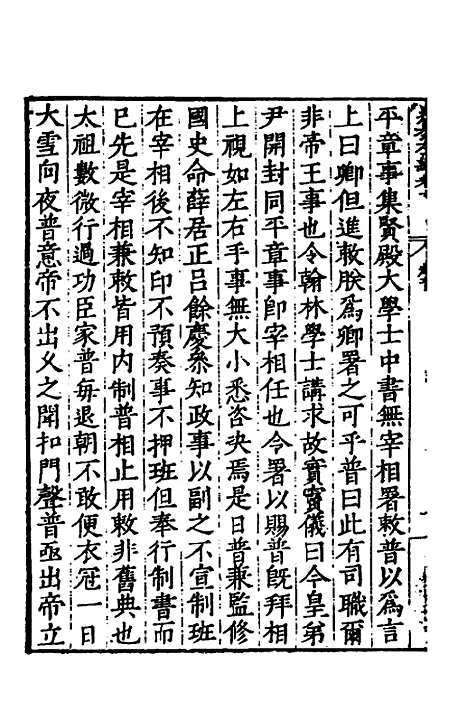 平章事集賢殿大學士中書無宰相署敕普以爲言
上曰卿但進敕朕爲卿署之可乎普曰此有司職爾
非帝王事也令翰林學士講求故實竇儀曰今皇弟
尹開封同平章事卽宰相任也令署以賜普旣拜相
上視如左右手事無大小悉咨决焉是日普兼監修
國史命薛居正呂餘慶叅知政事以副之不宣制班
在宰相後不知印不預奏事不押班但奉行制書而
已先是宰相兼敕皆用内制普相止用敕非舊典也
太祖數微行過功臣家普每退朝不敢便衣冠一日
大雪向夜普意帝不出乆之聞扣門聲普亟出帝立